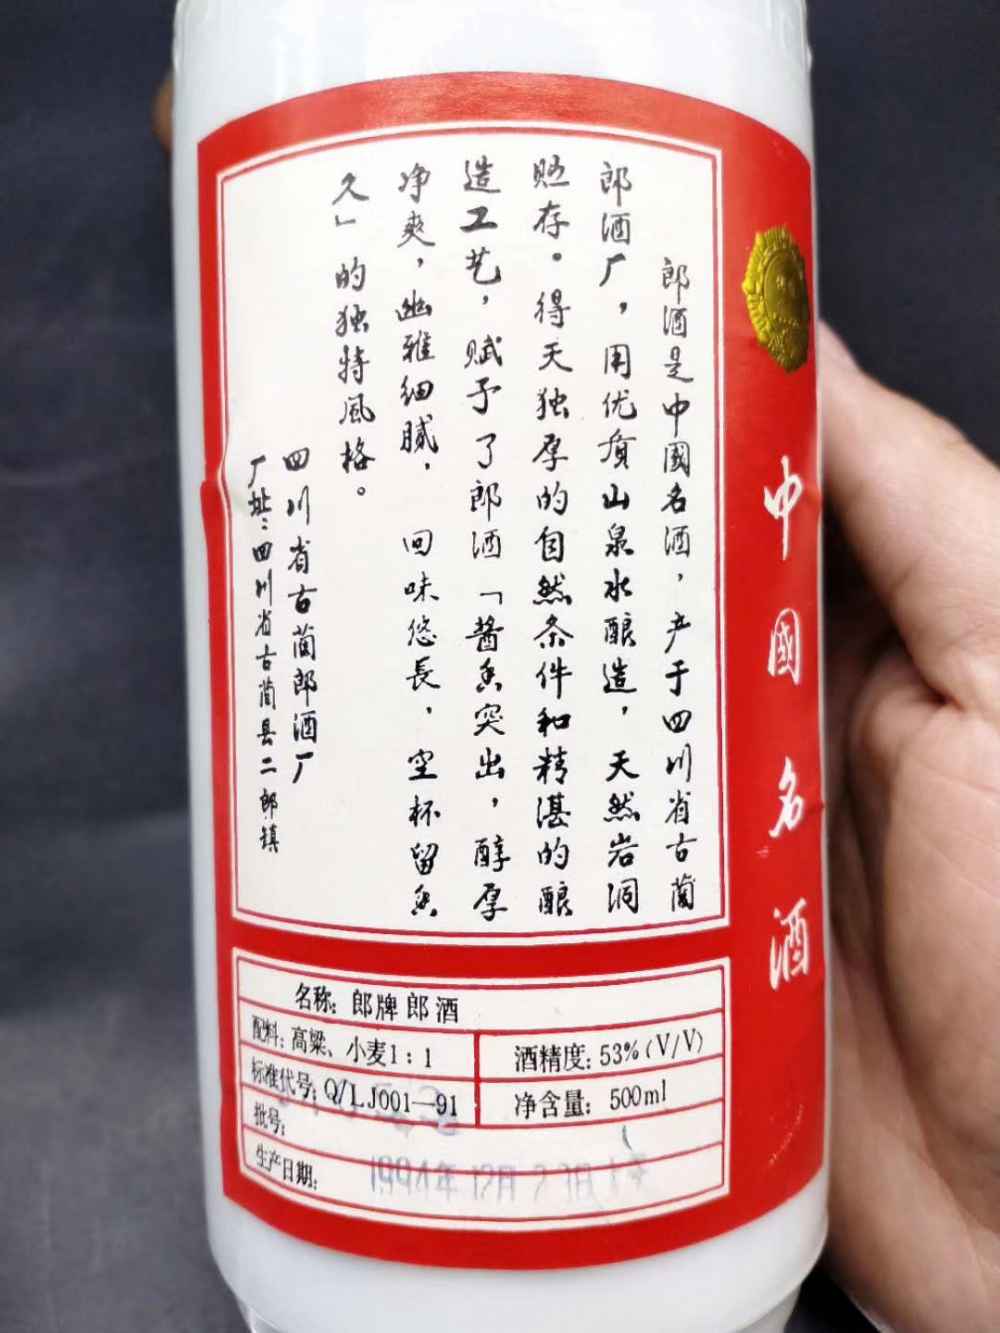 郎酒是中國名酒，产于四川省古蔺
郎酒厂，用优质山泉水酿造，天然岩洞
贮存。得天独厚的自然条件和精湛的酿
造工艺，赋予了郎酒「酱香突出，醇厚
净爽，幽雅细腻，回味悠長，空杯留香
久」的独特風格。
四川省古蔺郎酒厂
厂址：四川省古蔺县二郎镇
中國名酒
名称：郎牌郎酒
配料：高粱、小麦1：1
酒精度：53%(V/V)
标准代号：Q/LJ001—91
净含量：500ml
批号：
生产日期：1994年12月23日